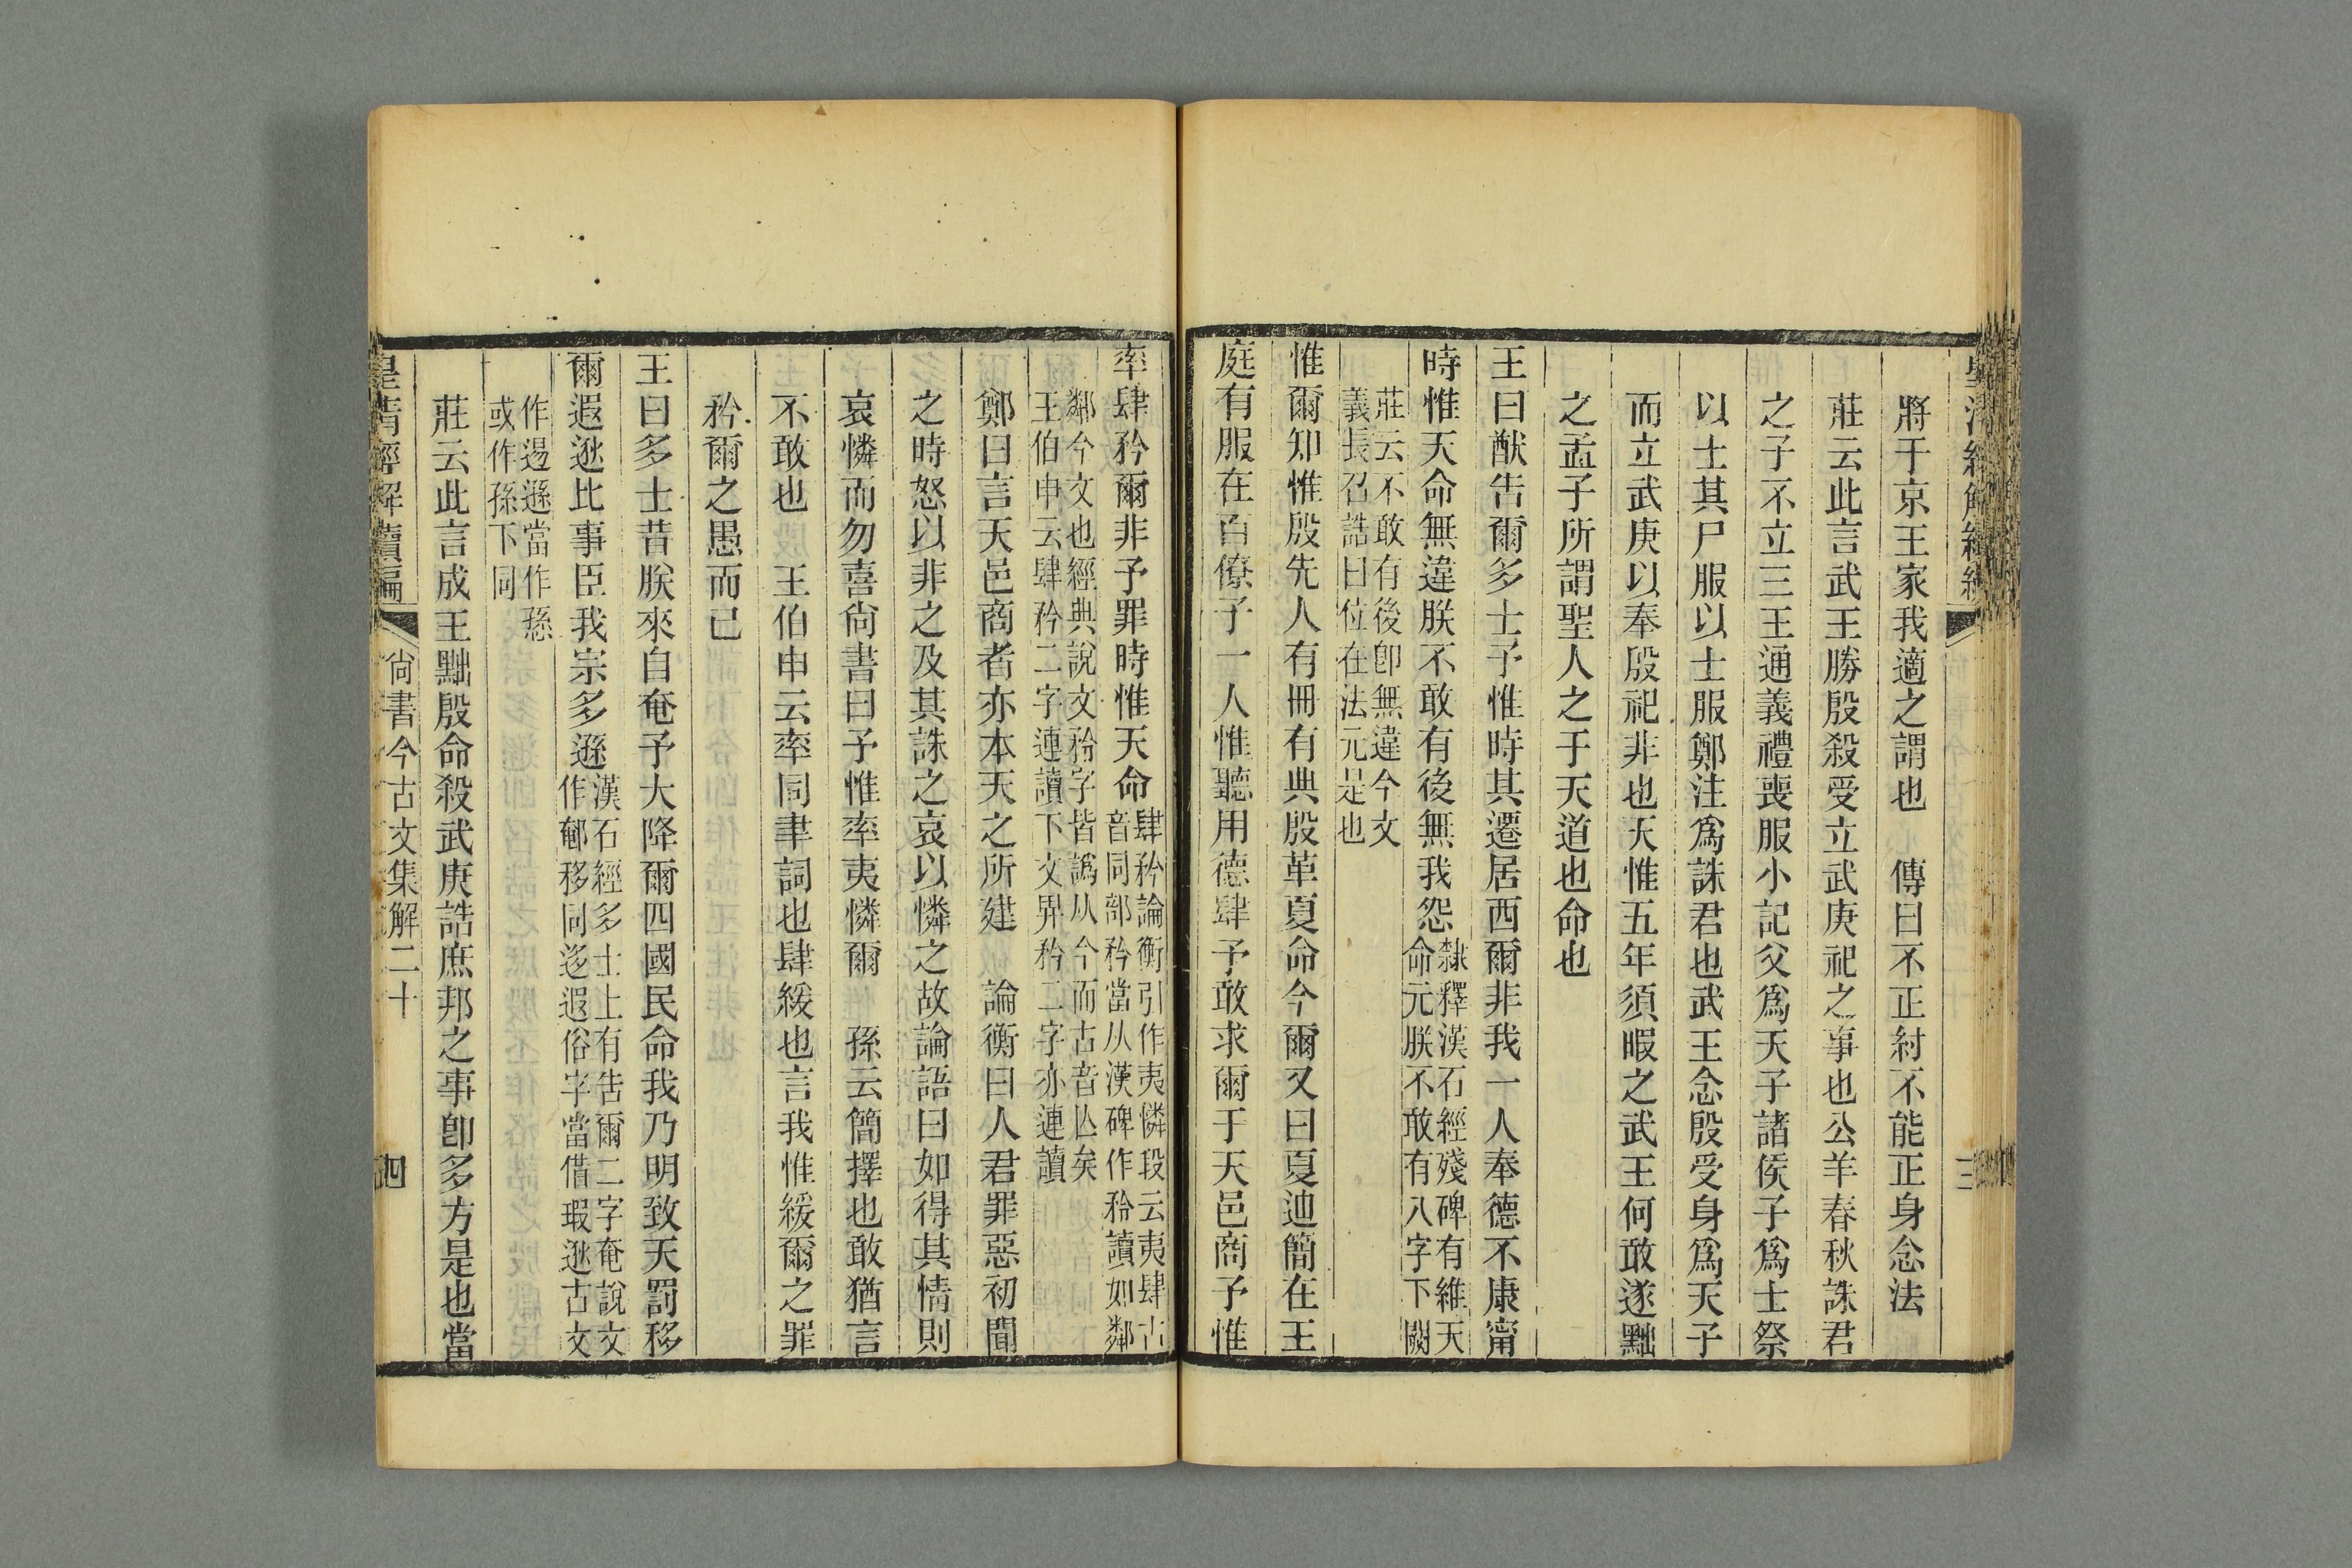 將于京王家我適之謂也　傳曰不正紂不能正身念法
莊云此言武王勝殷殺受立武庚祀之事也公羊春秋誅君
之子不立三王通義禮喪服小記父爲天子諸侯子爲士祭
以士其尸服以士服鄭注爲誅君也武王念殷受身爲天子
而立武庚以奉殷祀非也天惟五年須暇之武王何敢遂黜
之孟子所謂聖人之于天道也命也
王曰猷告爾多士予惟時其遷居西爾非我一人奉德不康甯
時惟天命無違朕不敢有後無我怨
隸釋漢石經殘碑有維天
命元朕不敢有八字下闕
莊云不敢有後卽無違今文
義長召誥曰位在法元是也
惟爾知惟殷先人有冊有典殷革夏命今爾又曰夏迪簡在王
庭有服在百僚予一人惟聽用德肆予敢求爾于天邑商予惟
率肆矜爾非予罪時惟天命
肆矜論衡引作夷憐段云夷肆古
音同部矜當从漢碑作矝讀如鄰
鄰今文也經典說文矜字皆譌从今而古音亾矣
王伯申云肆矜二字連讀下文畀矜二字亦連讀
鄭曰言天邑商者亦本天之所建　論衡曰人君罪惡初聞
之時怒以非之及其誅之哀以憐之故論語曰如得其情則
哀憐而勿喜尙書曰予惟率夷憐爾　孫云簡擇也敢猶言
不敢也　王伯申云率同聿詞也肆緩也言我惟緩爾之罪
矜爾之愚而已
王曰多士昔朕來自奄予大降爾四國民命我乃明致天罰移
爾遐逖比事臣我宗多遜
漢石經多士上有告爾二字奄說文
作䣍移同迻遐俗字當借瑕逖古文
作逷遜當作愻
或作孫下同
莊云此言成王黜殷命殺武庚誥庶邦之事卽多方是也當
皇清經解續編
尙書今古文集解二十
四